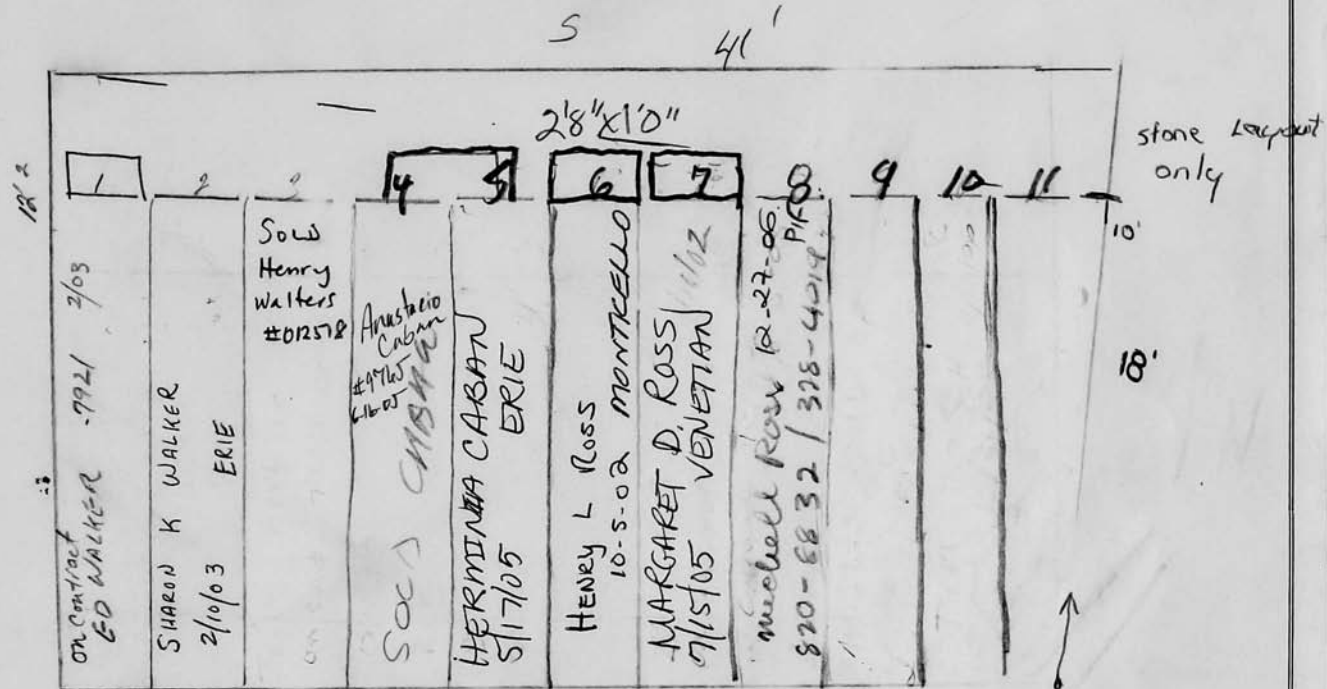 S
41'
2'8"X1'0"
stone Layout
only
12' 2
1 2 3 4 5 6 7 8 9 10 11
10'
18'
on Contract
ED WALKER -7921 2/03
SHARON K WALKER
2/10/03 ERIE
Sold
Henry
Walters
#012518
Anastacio
Caban
6-16-05
SOLD CABAN
HERMINIA CABAN
5/17/05 ERIE
HENRY L ROSS
10-5-02 MONTICELLO
MARGARET D. ROSS
7/15/05 VENETIAN
Michell Ross 12-27-05 PIF
820-6832 / 328-4019